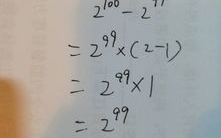 2¹⁰⁰ - 2⁹⁹
= 2⁹⁹×(2-1)
= 2⁹⁹×1
= 2⁹⁹